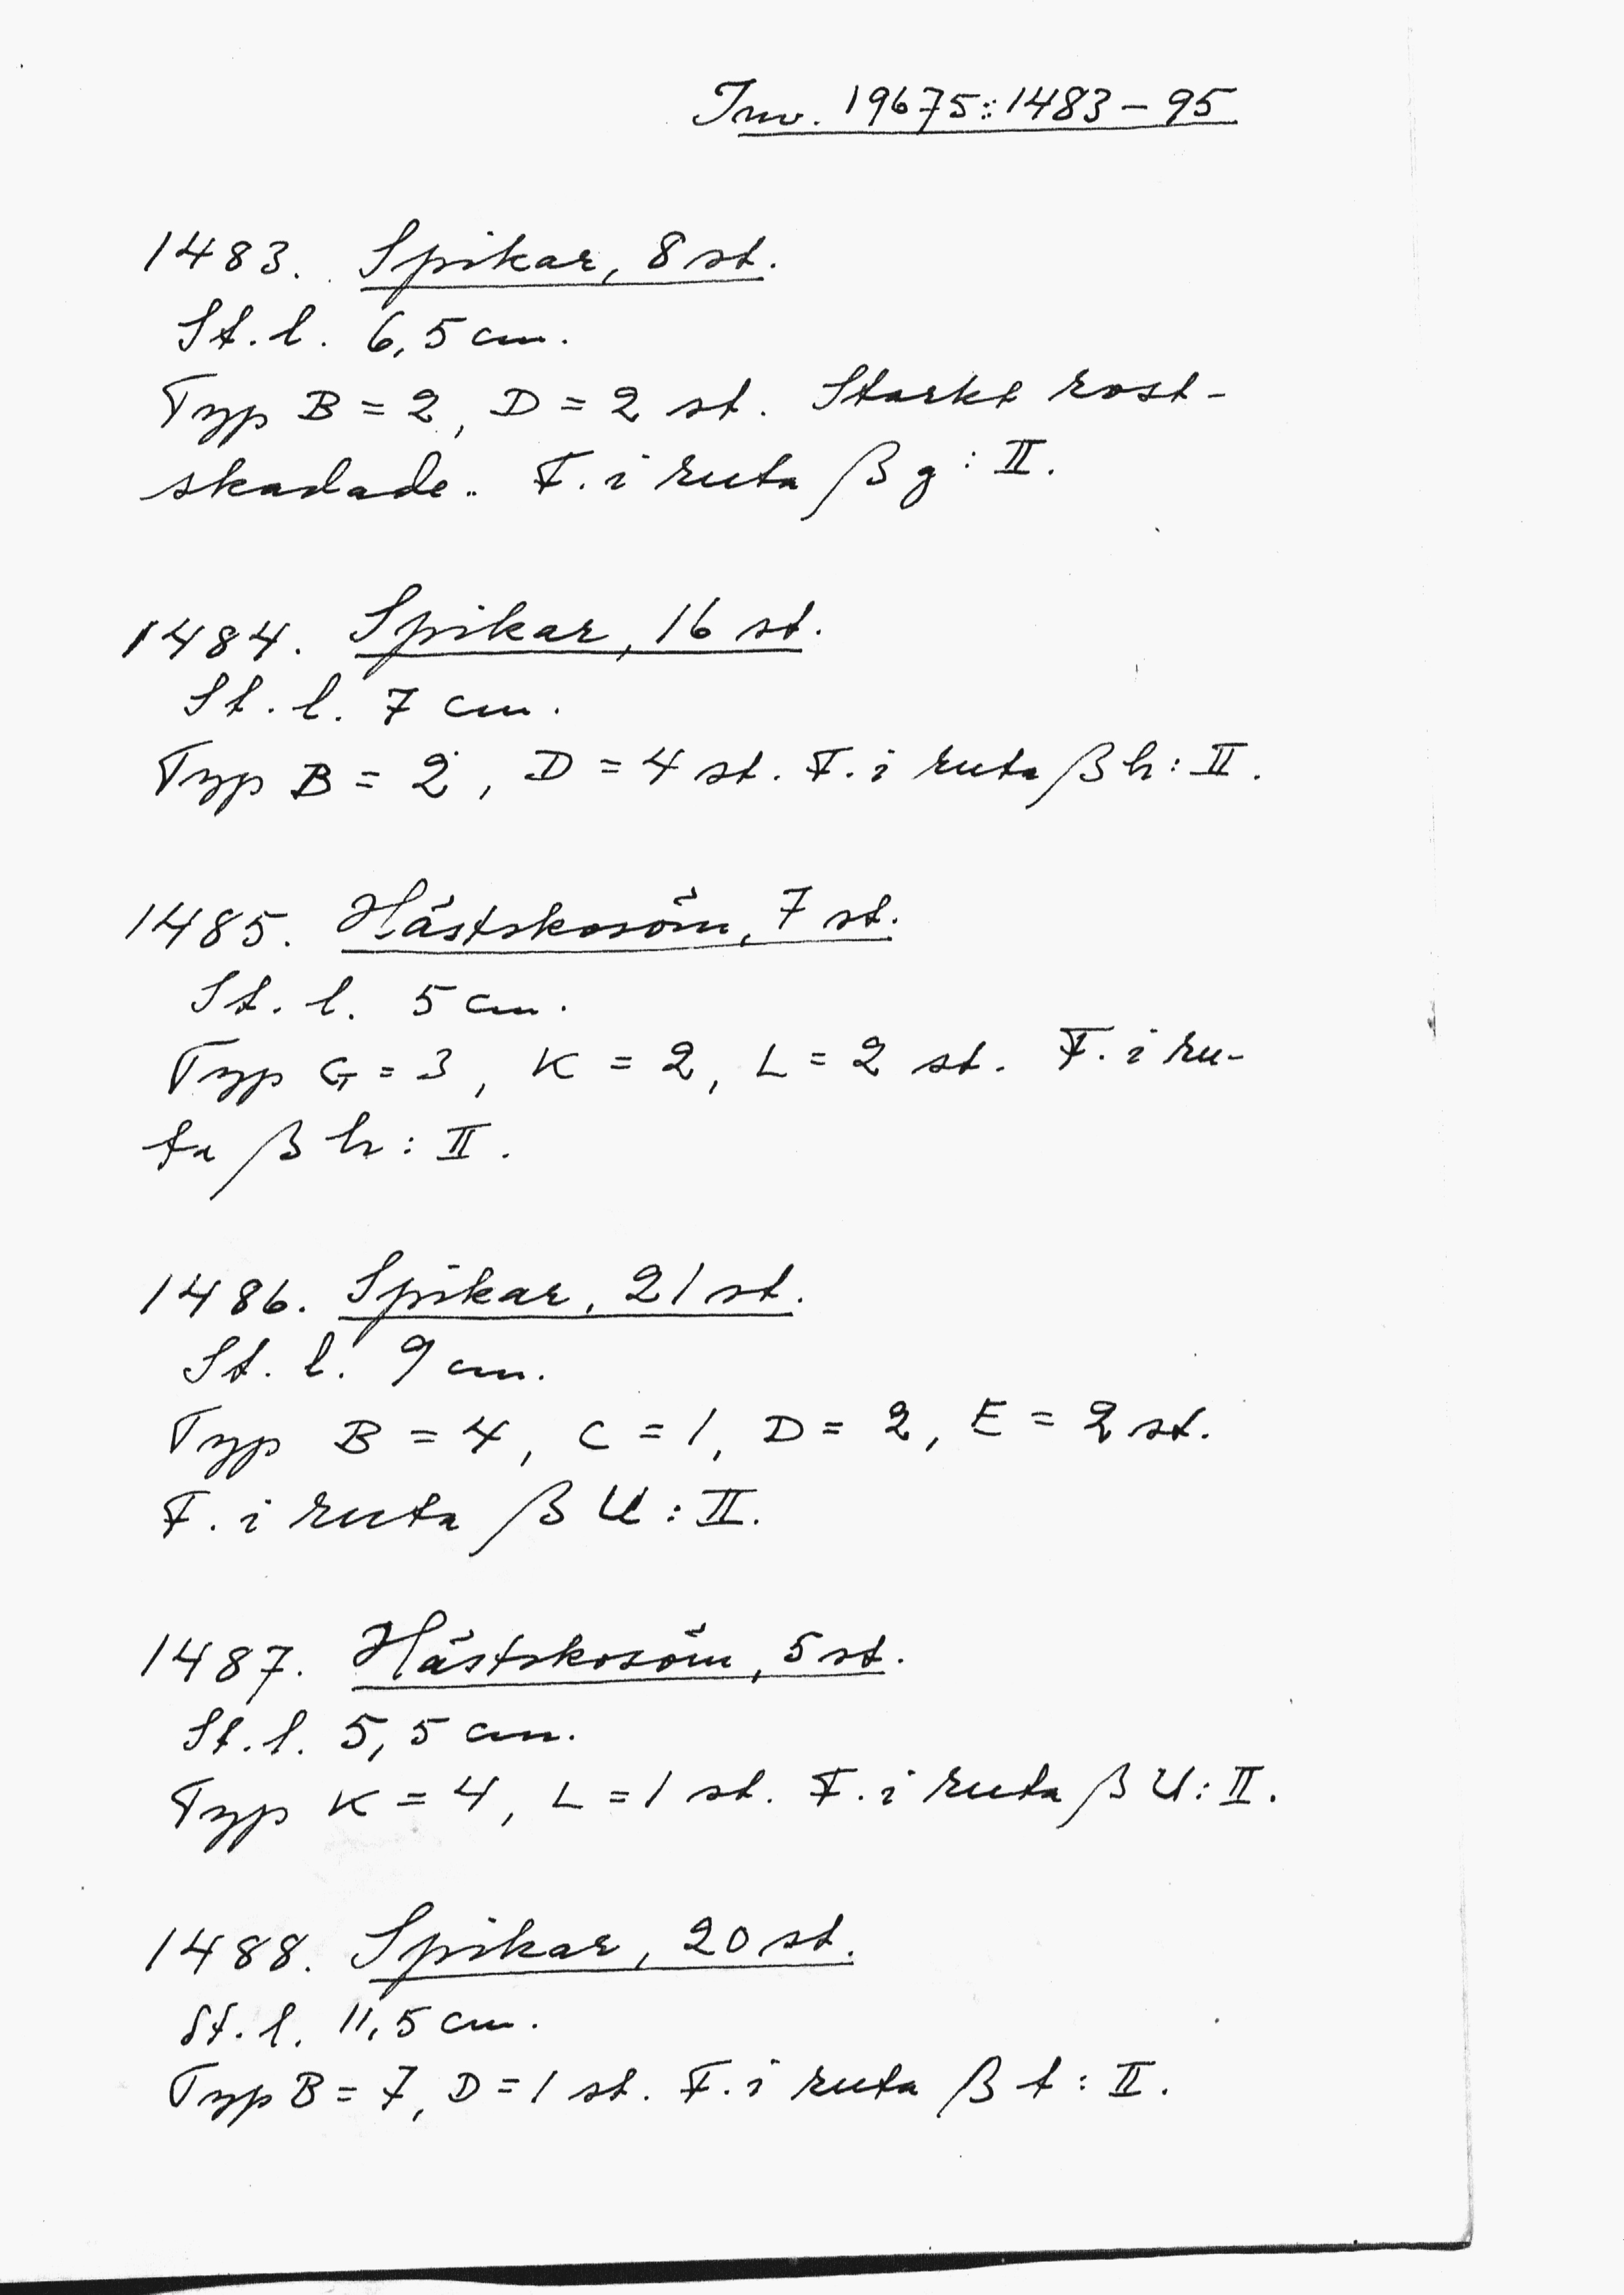 Inv. 19675:1483-95
1483. Spikar, 8 st.
St.l. 6,5 cm.
Typ B=2, D=2 st. Starkt rost-
skadade. F. i ruta β g: II.
1484. Spikar, 16 st.
St.l. 7 cm.
Typ B=2, D=4 st. F. i ruta β h: II.
1485. Hästskosöm, 7 st.
St.l. 5 cm.
Typ G=3, K=2, L=2 st. F. i ru-
ta β h: II.
1486. Spikar, 21 st.
St.l. 9 cm.
Typ B=4, C=1, D=2, E=2 st.
F. i ruta β U: II.
1487. Hästskosöm, 5 st.
St.l. 5,5 cm.
Typ K=4, L=1 st. F. i ruta β U: II.
1488. Spikar, 20 st.
St.l. 11,5 cm.
Typ B=7, D=1 st. F. i ruta β t: II.